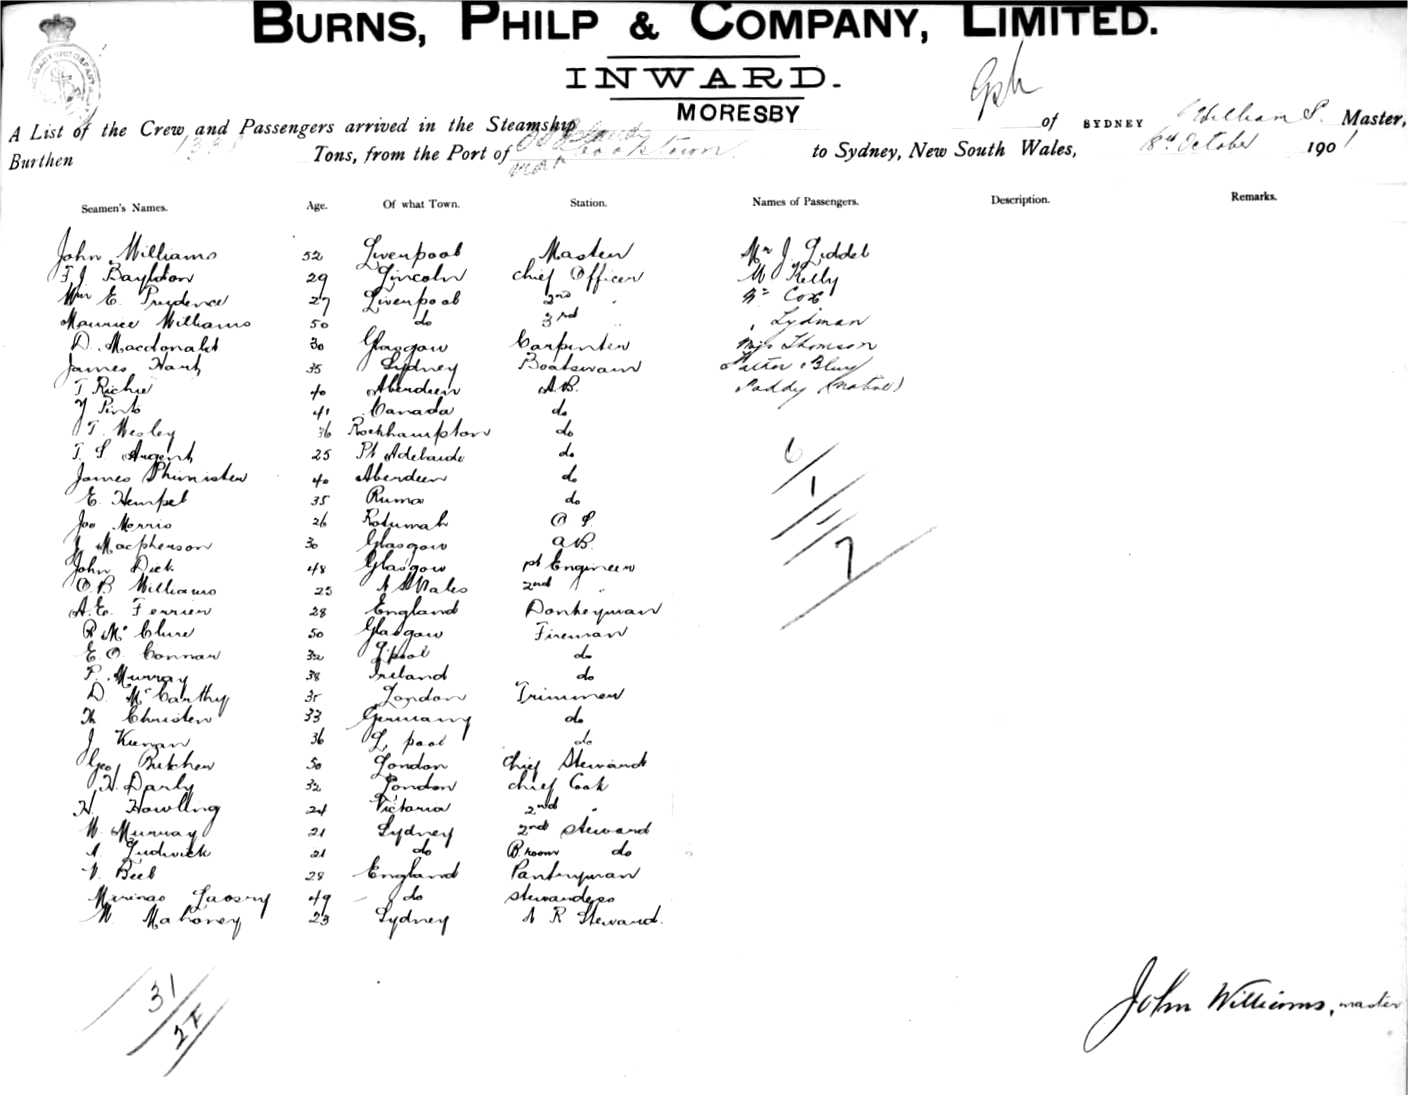 BURNS, PHILP & COMPANY, LIMITED.
INWARD.
MORESBY
A List of the Crew and Passengers arrived in the Steamship of SYDNEY William S. Master,
Burthen Tons, from the Port of Cooktown to Sydney, New South Wales, 8th October 1901
Seamen's Names. Age. Of what Town. Station. Names of Passengers. Description. Remarks.
John Williams 52 Liverpool Master Mr J. Liddel
F J Bayldon 29 Lincoln Chief Officer Kelly
Wm E. Prudence 27 Liverpool 2nd " Cox
Maurice Williams 50 do 3rd " " Lydman
D. Macdonald 30 Glasgow Carpenter Miss Thomson
James Hart 35 Sydney Boatswain
T Richie 40 Aberdeen A.B. Paddy (native)
41 Canada do
T. Wesley 36 Rockhampton do
T. S Argent 25 Pt Adelaide do
James Phimister 40 Aberdeen do
E. Hempel 35 do
Joe Morris 26 Rotumah O S.
J Macpherson 30 Glasgow A.B.
John Dick 48 Glasgow 1st Engineer
O.B Williams 25 N S Wales 2nd "
A.E. Ferrier 28 England Donkeyman
R McClure 50 Glasgow Fireman
E. O. Connor 32 L'pool do
P. Murray 38 Ireland do
D. McCarthy 35 London Trimmer
Th Christen 33 Germany do
J Kiernan 36 L'pool do
Geo Butcher 50 London Chief Steward
H. Darly 32 London Chief Cook
H. Howling 24 Victoria 2nd "
W. Murray 21 Sydney 2nd Steward
A. Ludwick 21 do B room do
V. Beel 28 England Pantryman
49 do Stewardess
W. Mahoney 23 Sydney A R Steward.
6
1
7
31
John Williams, master